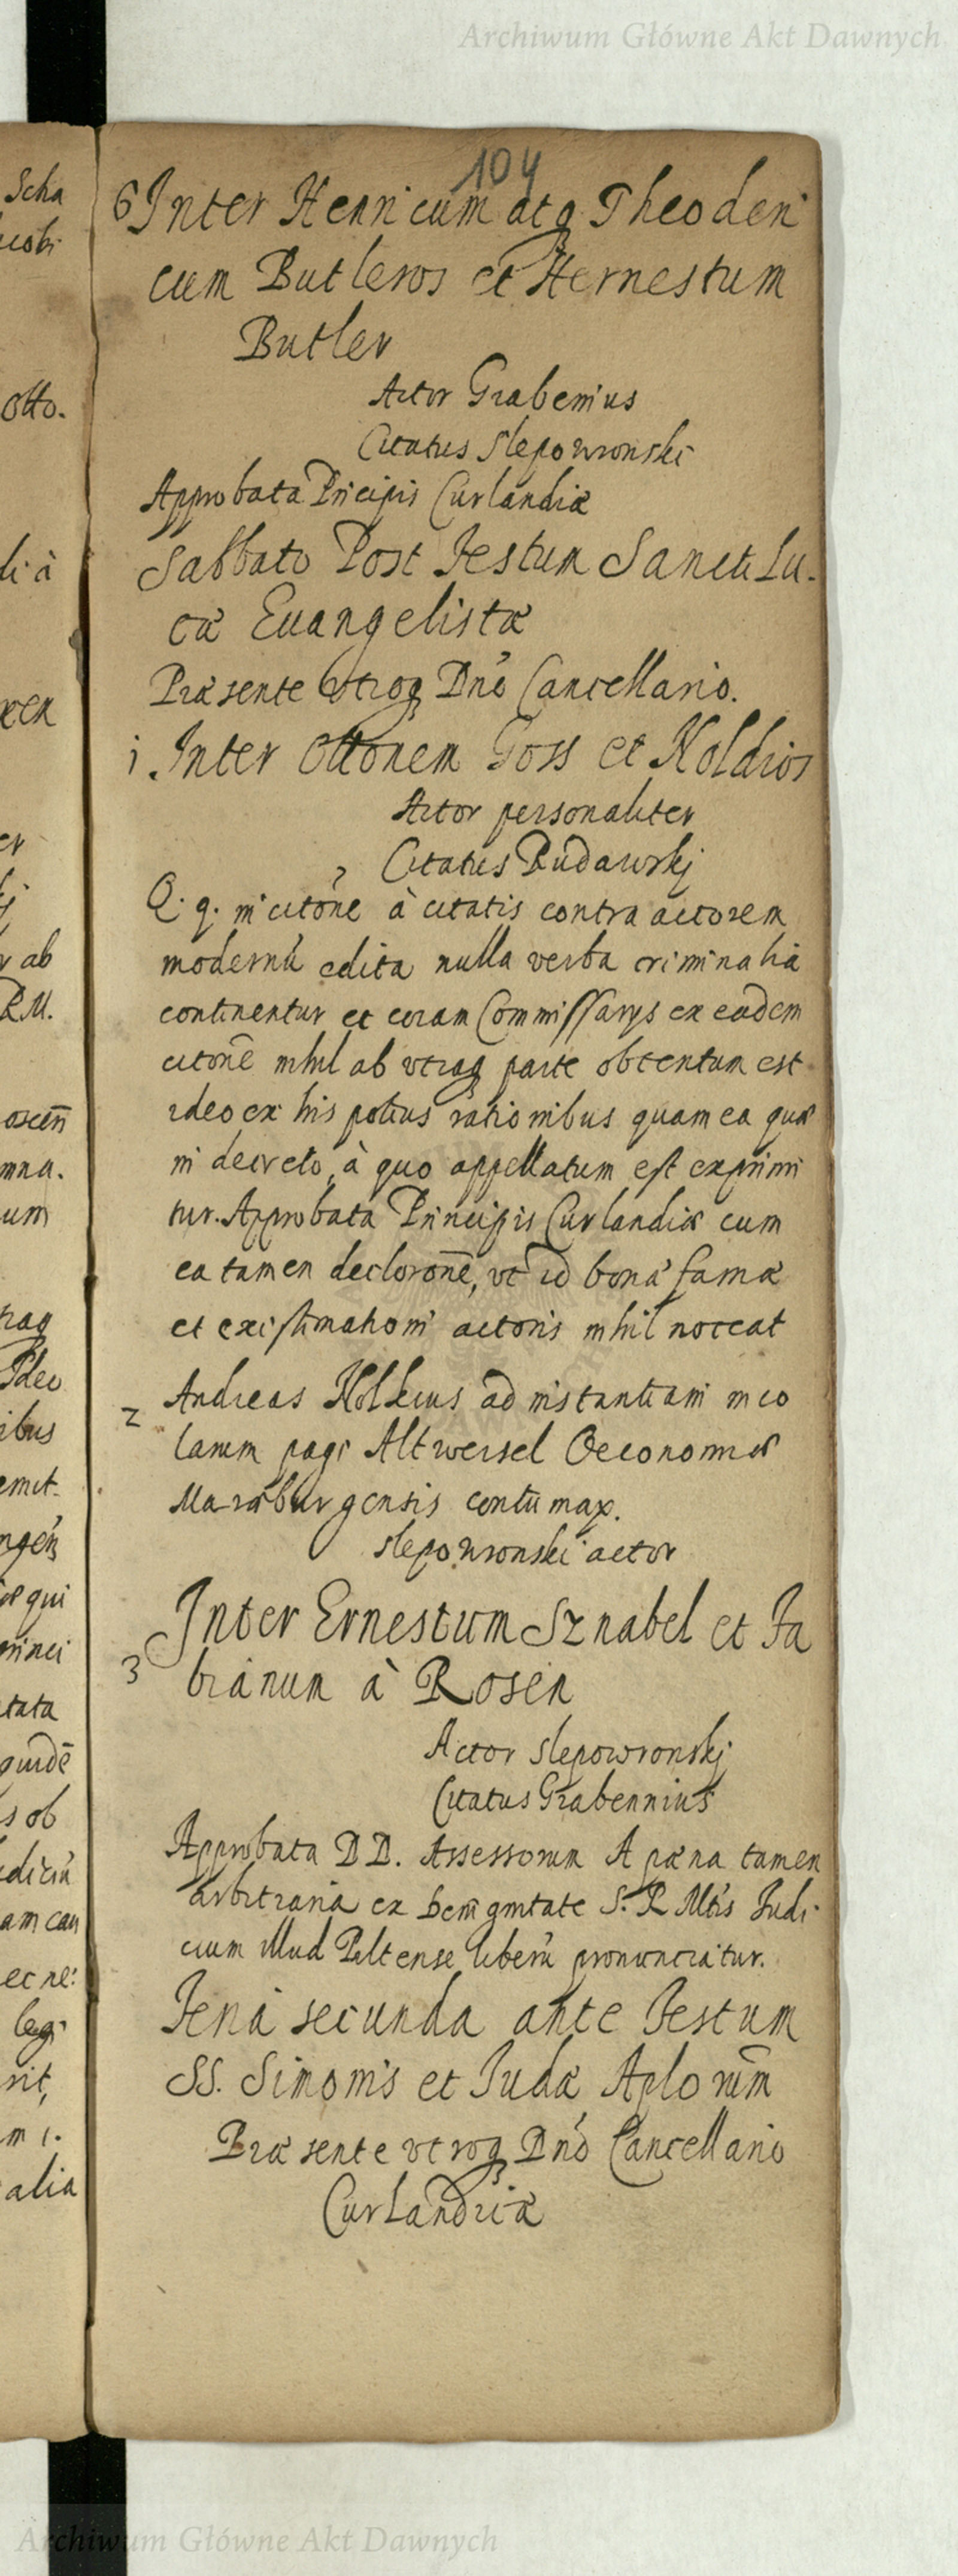 Archiwum Główne Akt Dawnych
104
6 Inter Henricum atq Theoderi
cum Butleros et Hernestum
Butler
Actor Grabenius
Citatus Slepowronski
Approbata Pricipis Curlandiæ
Sabbato Post Festum Sancti Lu-
cæ Euangelistæ
Præsente vtroq Dnō Cancellario.
1. Inter Ottonem Goss et Noldios
Actor personaliter
Citatus Rudawskj
Q. q. in citōne à citatis contra actorem
modernū edita nulla verba criminalia
continentur et coram Commissarys ex eadem
citonē nihil ab vtraq parte obtentum est
ideo ex his potius rationibus quam ea quæ
in decreto, à quo appellatum est exprimi
tur. Approbata Principis Curlandiæ cum
ea tamen decloronē, vt id bonæ famæ
et existimationi actoris nihil noceat
2 Andreas Noldius ad instantiam inco
larum pagi Altwersel Oeconomiæ
Maræburgensis contumax.
Slepowronski actor
3 Inter Ernestum Sznabel et Fa
bianum à Rosen
Actor Slepowronskj
Citatus Grabennius
Approbata DD. Assessorum A pæna tamen
arbitraria ex benigntate S. R Mtis Judi
cium illud Piltense liberū pronunciatur.
Feria secunda ante Festum
SS. Simonis et Judæ Aplorum
Præsente vtroq Dnō Cancellario
Curlandiæ
Archiwum Główne Akt Dawnych